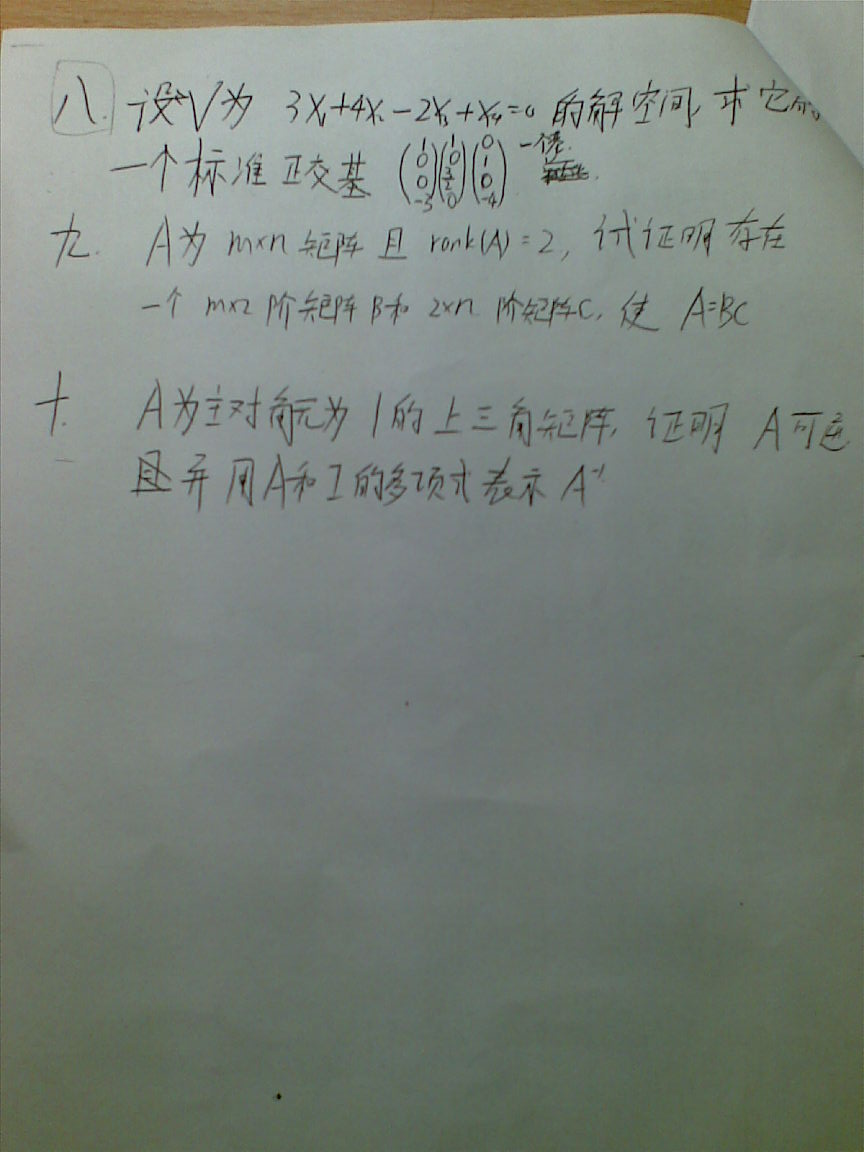 八. 设V为 3X₁+4X₂-2X₃+X₄=0 的解空间, 求它的
一个标准正交基 (1 0 0 -3) (1 0 3/2 0) (0 1 0 -4) 一个
九. A为 m×n 矩阵 且 rank(A)=2, 试证明存在
一个 m×2 阶矩阵B和 2×n 阶矩阵C, 使 A=BC
十. A为主对角元为 1 的上三角矩阵, 证明 A可逆
且并用A和I的多项式表示 A⁻¹